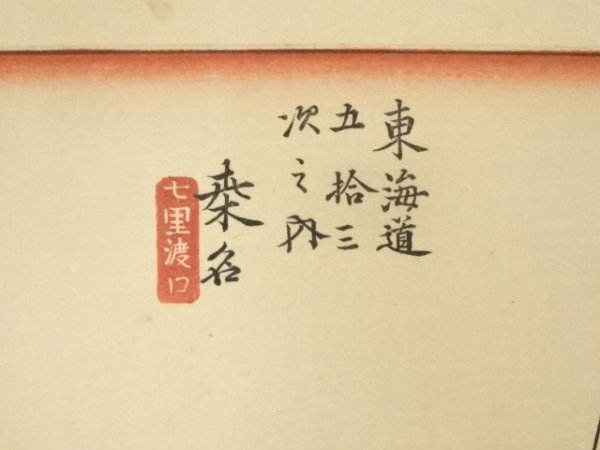 東海道
五拾三
次之内
桒名
七里渡口